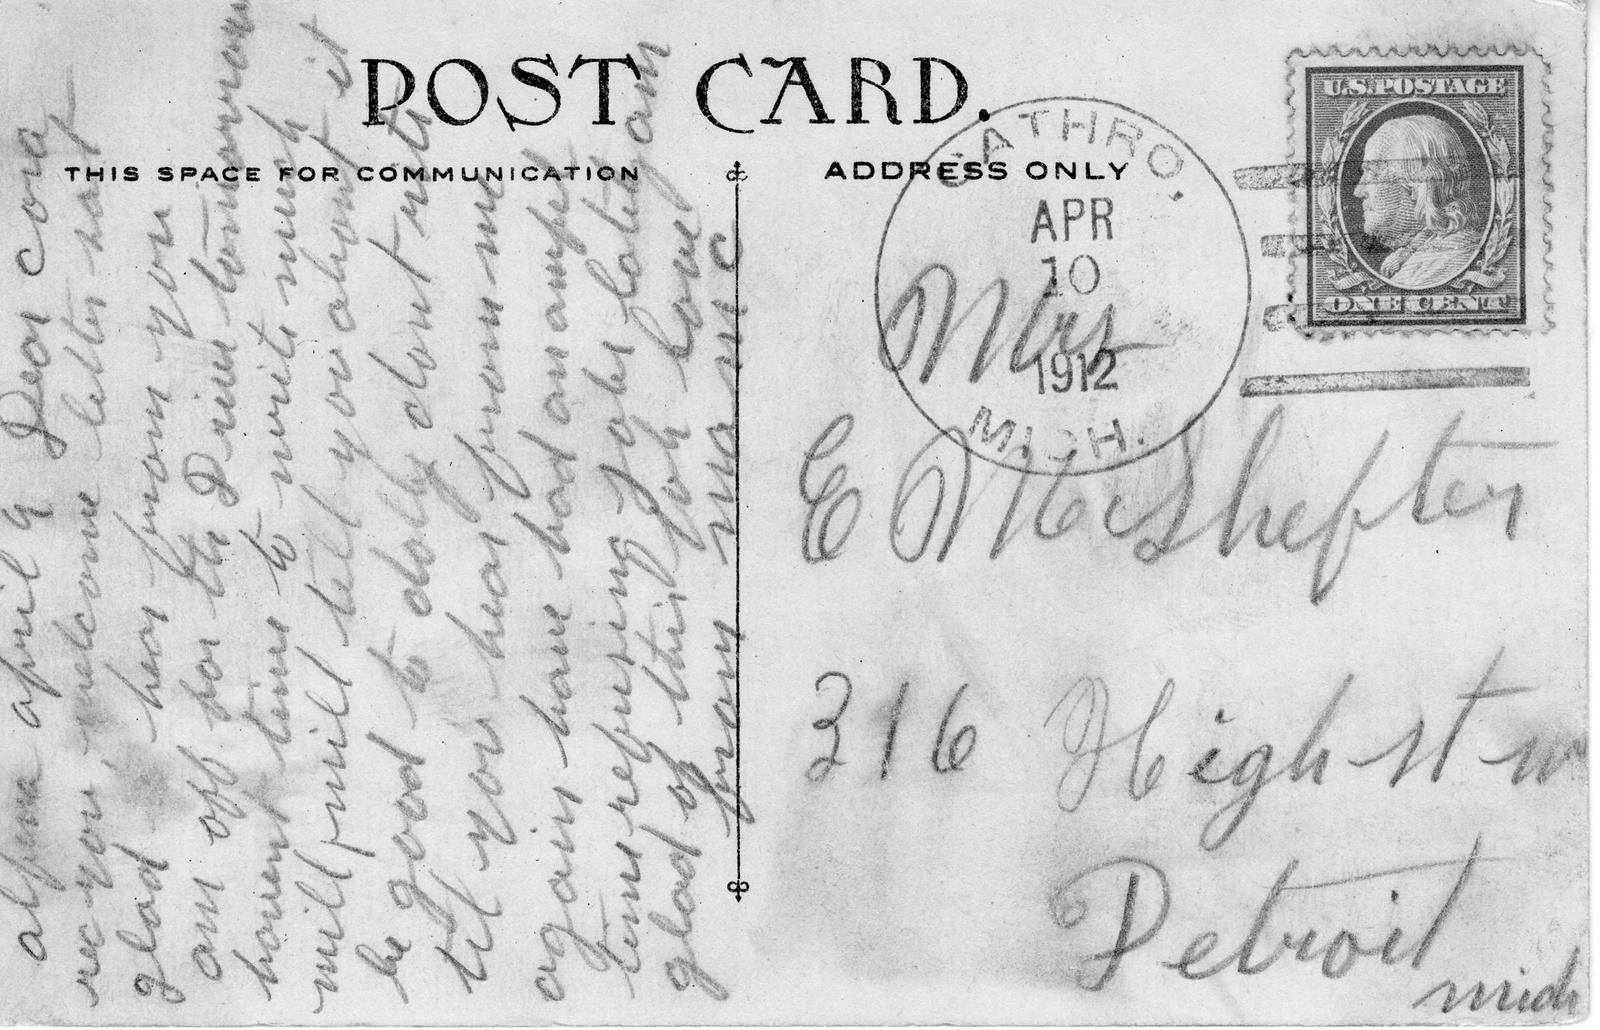 POST CARD.
THIS SPACE FOR COMMUNICATION
ADDRESS ONLY
U.S. POSTAGE
ONE CENT
CATHRO,
APR
10
1912
MICH.
alpena april 9 Dear Cora
rec you, welcome letter sat
glad hear from you
am off for the Drive tomorrow
havent time to write much
will will tell you about it
be good to dolly dont rite
til you hear from me
again have had an awful
time refusing jobs lately am
glad of this job love
from ma m c
Mrs
E McShefter
316 High st w
Detroit
mich